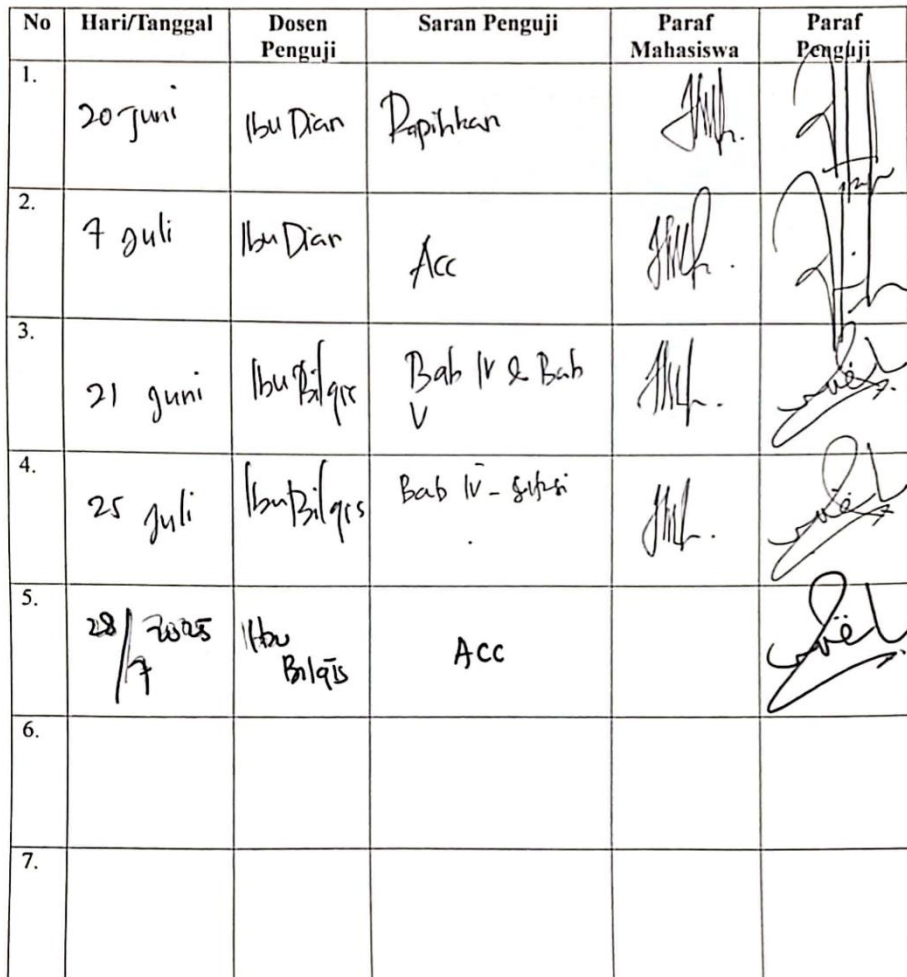 No Hari/Tanggal Dosen Penguji Saran Penguji Paraf Mahasiswa Paraf Penguji
1. 20 Juni Ibu Dian Rapihkan
2. 7 Juli Ibu Dian Acc
3. 21 Juni Ibu Bilqis Bab IV & Bab V
4. 25 Juli Ibu Bilqis Bab IV -
5. 28/7 2025 Ibu Bilqis ACC
6.
7.